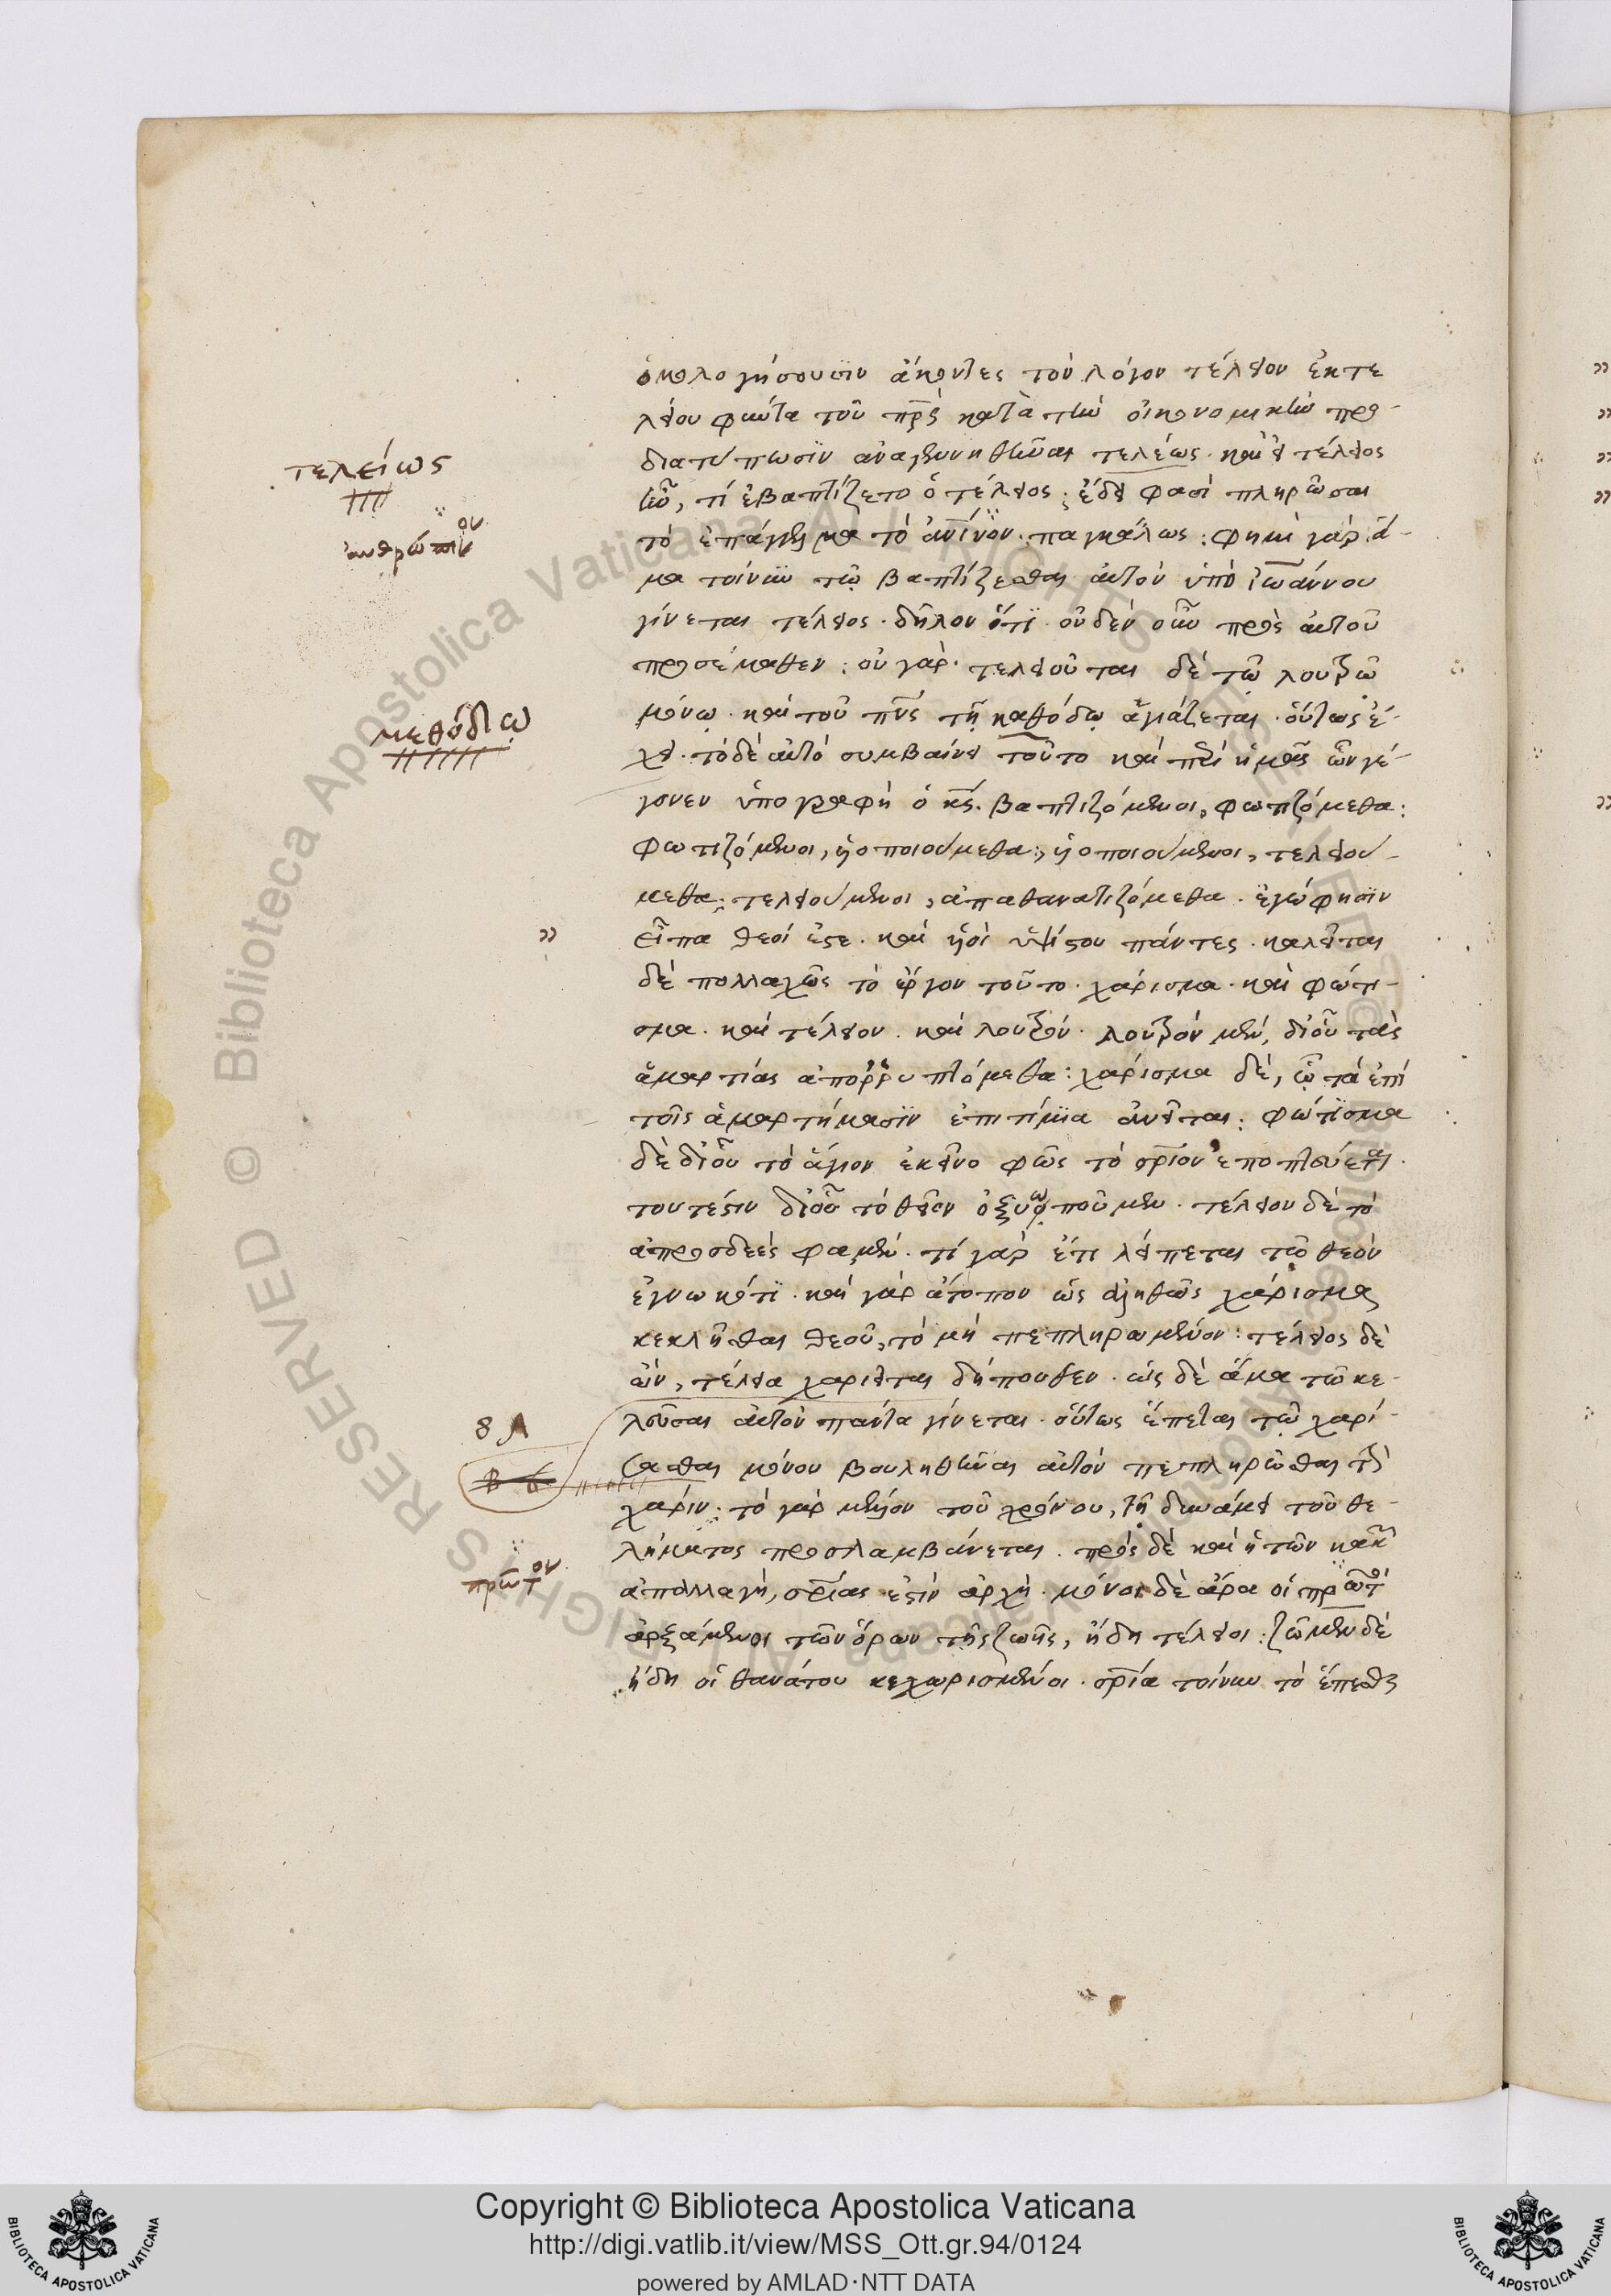 ὁμολογήσουσιν ἄκοντες τὸν λόγον τέλειον ἐκ τε
λείου φύντα τοῦ πρς κατὰ τὴν οἰκονομικὴν προ-
διατύπωσιν ἀναγεννηθῆναι τελέως. καὶ εἰ τέλειος
ἦν, τί ἐβαπτίζετο ὁ τέλειος; ἔδει φασὶ πληρῶσαι
τὸ ἐπάγγελμα τὸ ἀνινον. παγκάλως: φημὶ γάρ. ἅ-
μα τοίνυν τῷ βαπτίζεσθαι αὐτὸν ὑπὸ ἰωάννου
γίνεται τέλειος. δῆλον ὅτι. οὐδὲν οὖν πρὸς αὐτοῦ
προσέμαθεν: οὐ γάρ. τελειοῦται δὲ τῷ λουτρῷ
μόνῳ. καὶ τοῦ πνς τῇ καθόδῳ ἁγιάζεται. οὕτως ἔ-
χει. τὸ δὲ αὐτὸ συμβαίνει τοῦτο καὶ περὶ ἡμᾶς ὧν γέ-
γονεν ὑπογραφὴ ὁ κς. βαπτιζόμενοι, φωτιζόμεθα:
φωτιζόμενοι, ὑοποιούμεθα: ὑοποιούμενοι, τελειού-
μεθα: τελειούμενοι, ἀπαθανατιζόμεθα. ἐγώ φησιν
εἶπα θεοί ἐστε. καὶ υἱοὶ ὑψίστου πάντες. καλεῖται
δὲ πολλαχῶς τὸ ἔργον τοῦτο. χάρισμα. καὶ φώτι-
σμα. καὶ τέλειον. καὶ λουτρόν. λουτρὸν μέν, δι' οὗ τὰς
ἁμαρτίας ἀπορρυπτόμεθα: χάρισμα δέ, ᾧ τὰ ἐπὶ
τοῖς ἁμαρτήμασιν ἐπιτίμια ἀνεῖται: φώτισμα
δὲ δι' οὗ τὸ ἅγιον ἐκεῖνο φῶς τὸ σριον ἐποπτεύεται.
τουτέστιν δι' οὗ τὸ θεῖον ὀξυωποῦμεν. τέλειον δὲ τὸ
ἀπροσδεές φαμέν. τί γὰρ ἔτι λείπεται τῷ θεὸν
ἐγνωκότι. καὶ γὰρ ἄτοπον ὡς ἀληθῶς χάρισμα
κεκλῆσθαι θεοῦ, τὸ μὴ πεπληρωμένον: τέλειος δὲ
ὤν, τέλεια χαριεῖται δήπουθεν. ὡς δὲ ἅμα τῷ κε-
λεῦσαι αὐτὸν πάντα γίνεται. οὕτως ἕπεται τῷ χαρί-
σασθαι μόνον βουληθῆναι αὐτὸν πεπληρῶσθαι τὴν
χάριν: τὸ γὰρ μέλλον τοῦ χρόνου, τῇ δυνάμει τοῦ θε-
λήματος προσλαμβάνεται. πρὸς δὲ καὶ ἡ τῶν κακῶν
ἀπαλλαγή, σριας ἐστὶν ἀρχή. μόνοι δὲ ἄρα οἱ πρῶτοι
ἀρξάμενοι τῶν ὅρων τῆς ζωῆς, ἤδη τέλειοι: ζῶμεν δὲ
ἤδη οἱ θανάτου κεχωρισμένοι. σρια τοίνυν τὸ ἕπεσθαι
τελείως
ἀνθρώπινον
μεθόδῳ
πρῶτον
Copyright © Biblioteca Apostolica Vaticana
http://digi.vatlib.it/view/MSS_Ott.gr.94/0124
powered by AMLAD·NTT DATA
BIBLIOTECA APOSTOLICA VATICANA
BIBLIOTECA APOSTOLICA VATICANA